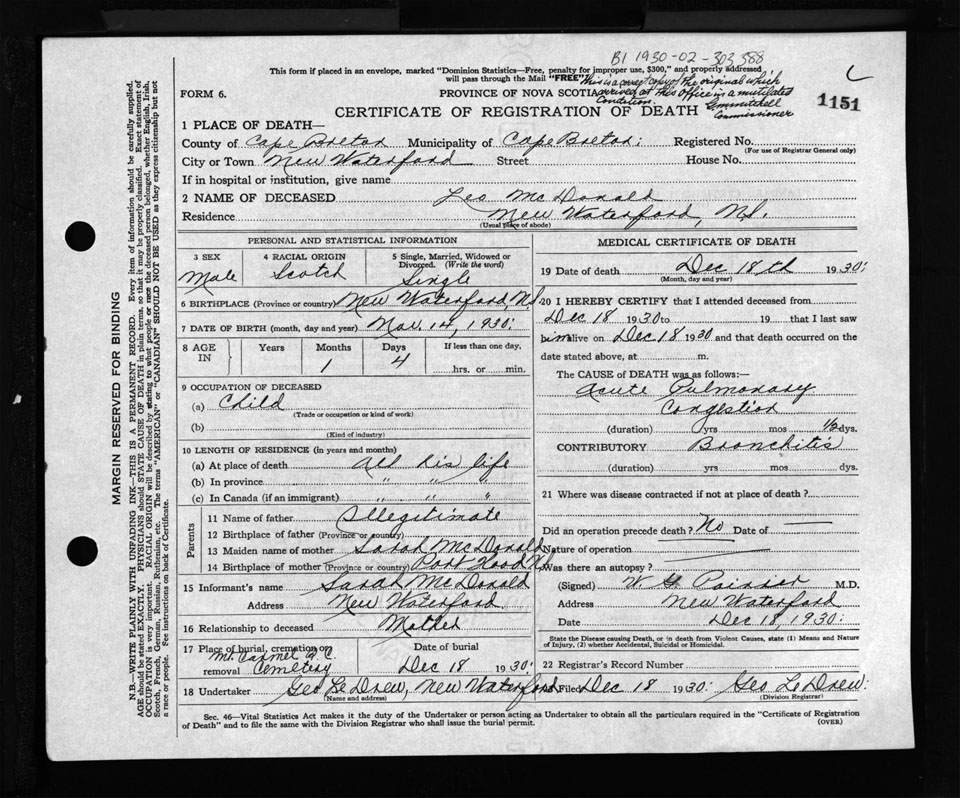 B1 1930-02-303388
This form if placed in an envelope, marked "Dominion Statistics—Free, penalty for improper use, $300," and properly addressed
will pass through the Mail "FREE"
This is a correct copy of the original which
arrived at this office in a mutilated
Condition.
Commissioner
FORM 6.
PROVINCE OF NOVA SCOTIA
1151
CERTIFICATE OF REGISTRATION OF DEATH
1 PLACE OF DEATH—
County of Cape Breton Municipality of Cape Breton: Registered No.
(For use of Registrar General only)
City or Town New Waterford Street House No.
If in hospital or institution, give name
2 NAME OF DECEASED Leo McDonald
Residence New Waterford, N.S.
(Usual place of abode)
PERSONAL AND STATISTICAL INFORMATION
3 SEX Male
4 RACIAL ORIGIN Scotch
5 Single, Married, Widowed or
Divorced. (Write the word)
Single
6 BIRTHPLACE (Province or country) New Waterford, N.S.
7 DATE OF BIRTH (month, day and year) 14, 1930:
8 AGE IN Years Months Days If less than one day,
1 4 hrs. or min.
9 OCCUPATION OF DECEASED
(a) Child
(Trade or occupation or kind of work)
(b)
(Kind of industry)
10 LENGTH OF RESIDENCE (in years and months)
(a) At place of death All his life
(b) In province " " "
(c) In Canada (if an immigrant) " " "
Parents
11 Name of father Illegitimate
12 Birthplace of father (Province or country)
13 Maiden name of mother Sarah McDonald
14 Birthplace of mother (Province or country) Port Hood N.S.
15 Informant's name Sarah McDonald
Address New Waterford
16 Relationship to deceased Mother
17 Place of burial, cremation or removal Mt. Carmel R.C. Cemetery
Date of burial
Dec 18 1930:
18 Undertaker Geo LeDrew, New Waterford
(Name and address)
MEDICAL CERTIFICATE OF DEATH
19 Date of death Dec 18th 1930:
(Month, day and year)
20 I HEREBY CERTIFY that I attended deceased from
Dec 18 1930 to 19 that I last saw
him alive on Dec 18 1930 and that death occurred on the
date stated above, at m.
The CAUSE of DEATH was as follows:—
Acute Pulmonary
Congestion
(duration) yrs mos ½ dys.
CONTRIBUTORY Bronchitis
(duration) yrs mos dys.
21 Where was disease contracted if not at place of death?
Did an operation precede death? No Date of —
Nature of operation —
Was there an autopsy? —
(Signed) W. M.D.
Address New Waterford
Date Dec 18, 1930:
State the Disease causing Death, or in death from Violent Causes, state (1) Means and Nature
of Injury, (2) whether Accidental, Suicidal or Homicidal.
22 Registrar's Record Number
Filed Dec 18 1930: Geo LeDrew:
(Division Registrar)
Sec. 46—Vital Statistics Act makes it the duty of the Undertaker or person acting as Undertaker to obtain all the particulars required in the "Certificate of Registration
of Death" and to file the same with the Division Registrar who shall issue the burial permit.
(OVER)
MARGIN RESERVED FOR BINDING
N.B.—WRITE PLAINLY WITH UNFADING INK—THIS IS A PERMANENT RECORD. Every item of information should be carefully supplied.
AGE should be stated EXACTLY. PHYSICIANS should STATE CAUSE OF DEATH in plain terms, so that it may be properly classified. Exact statement of
OCCUPATION is very important. RACIAL ORIGIN will be described by stating to what people or race the deceased person belonged, whether English, Irish,
Scotch, French, German, Russian, Ruthenian, etc. The terms "AMERICAN" or "CANADIAN" SHOULD NOT BE USED as they express citizenship but not
a race or people. Fee instructions on back of Certificate.